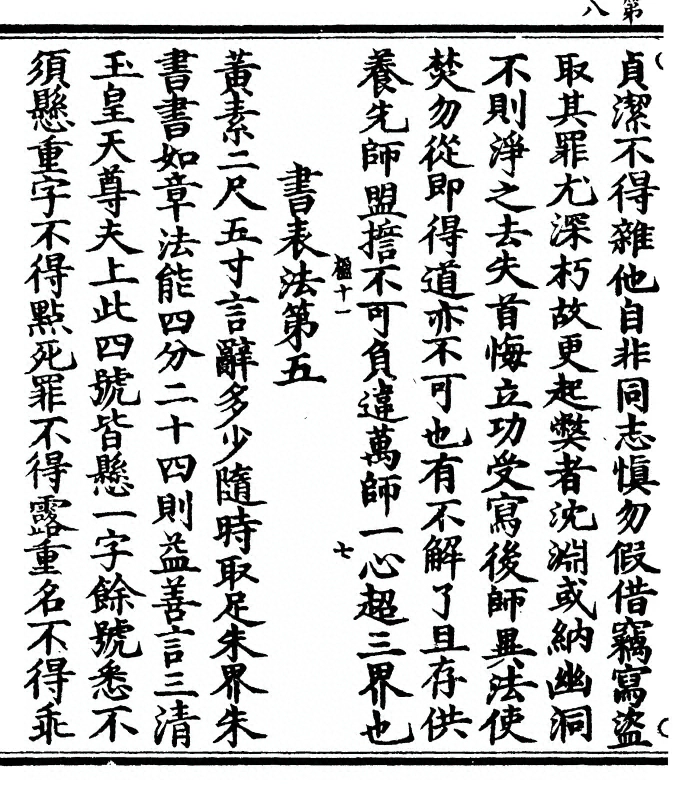 第八
貞潔不得雜他自非同志慎勿假借竊寫盜
取其罪尤深朽故更起弊者沈淵或納幽洞
不則淨之去失首悔立功受寫後師異法使
焚勿從即得道亦不可也有不解了且存供
養先師盟擔不可負違萬師一心超三界也
楹十一
七
書表法第五
黃素二尺五寸言辭多少隨時取足朱界朱
書書如章法能四分二十四則益善言三清
玉皇天尊夫上此四號皆懸一字餘號悉不
須懸重字不得點死罪不得露重名不得乖